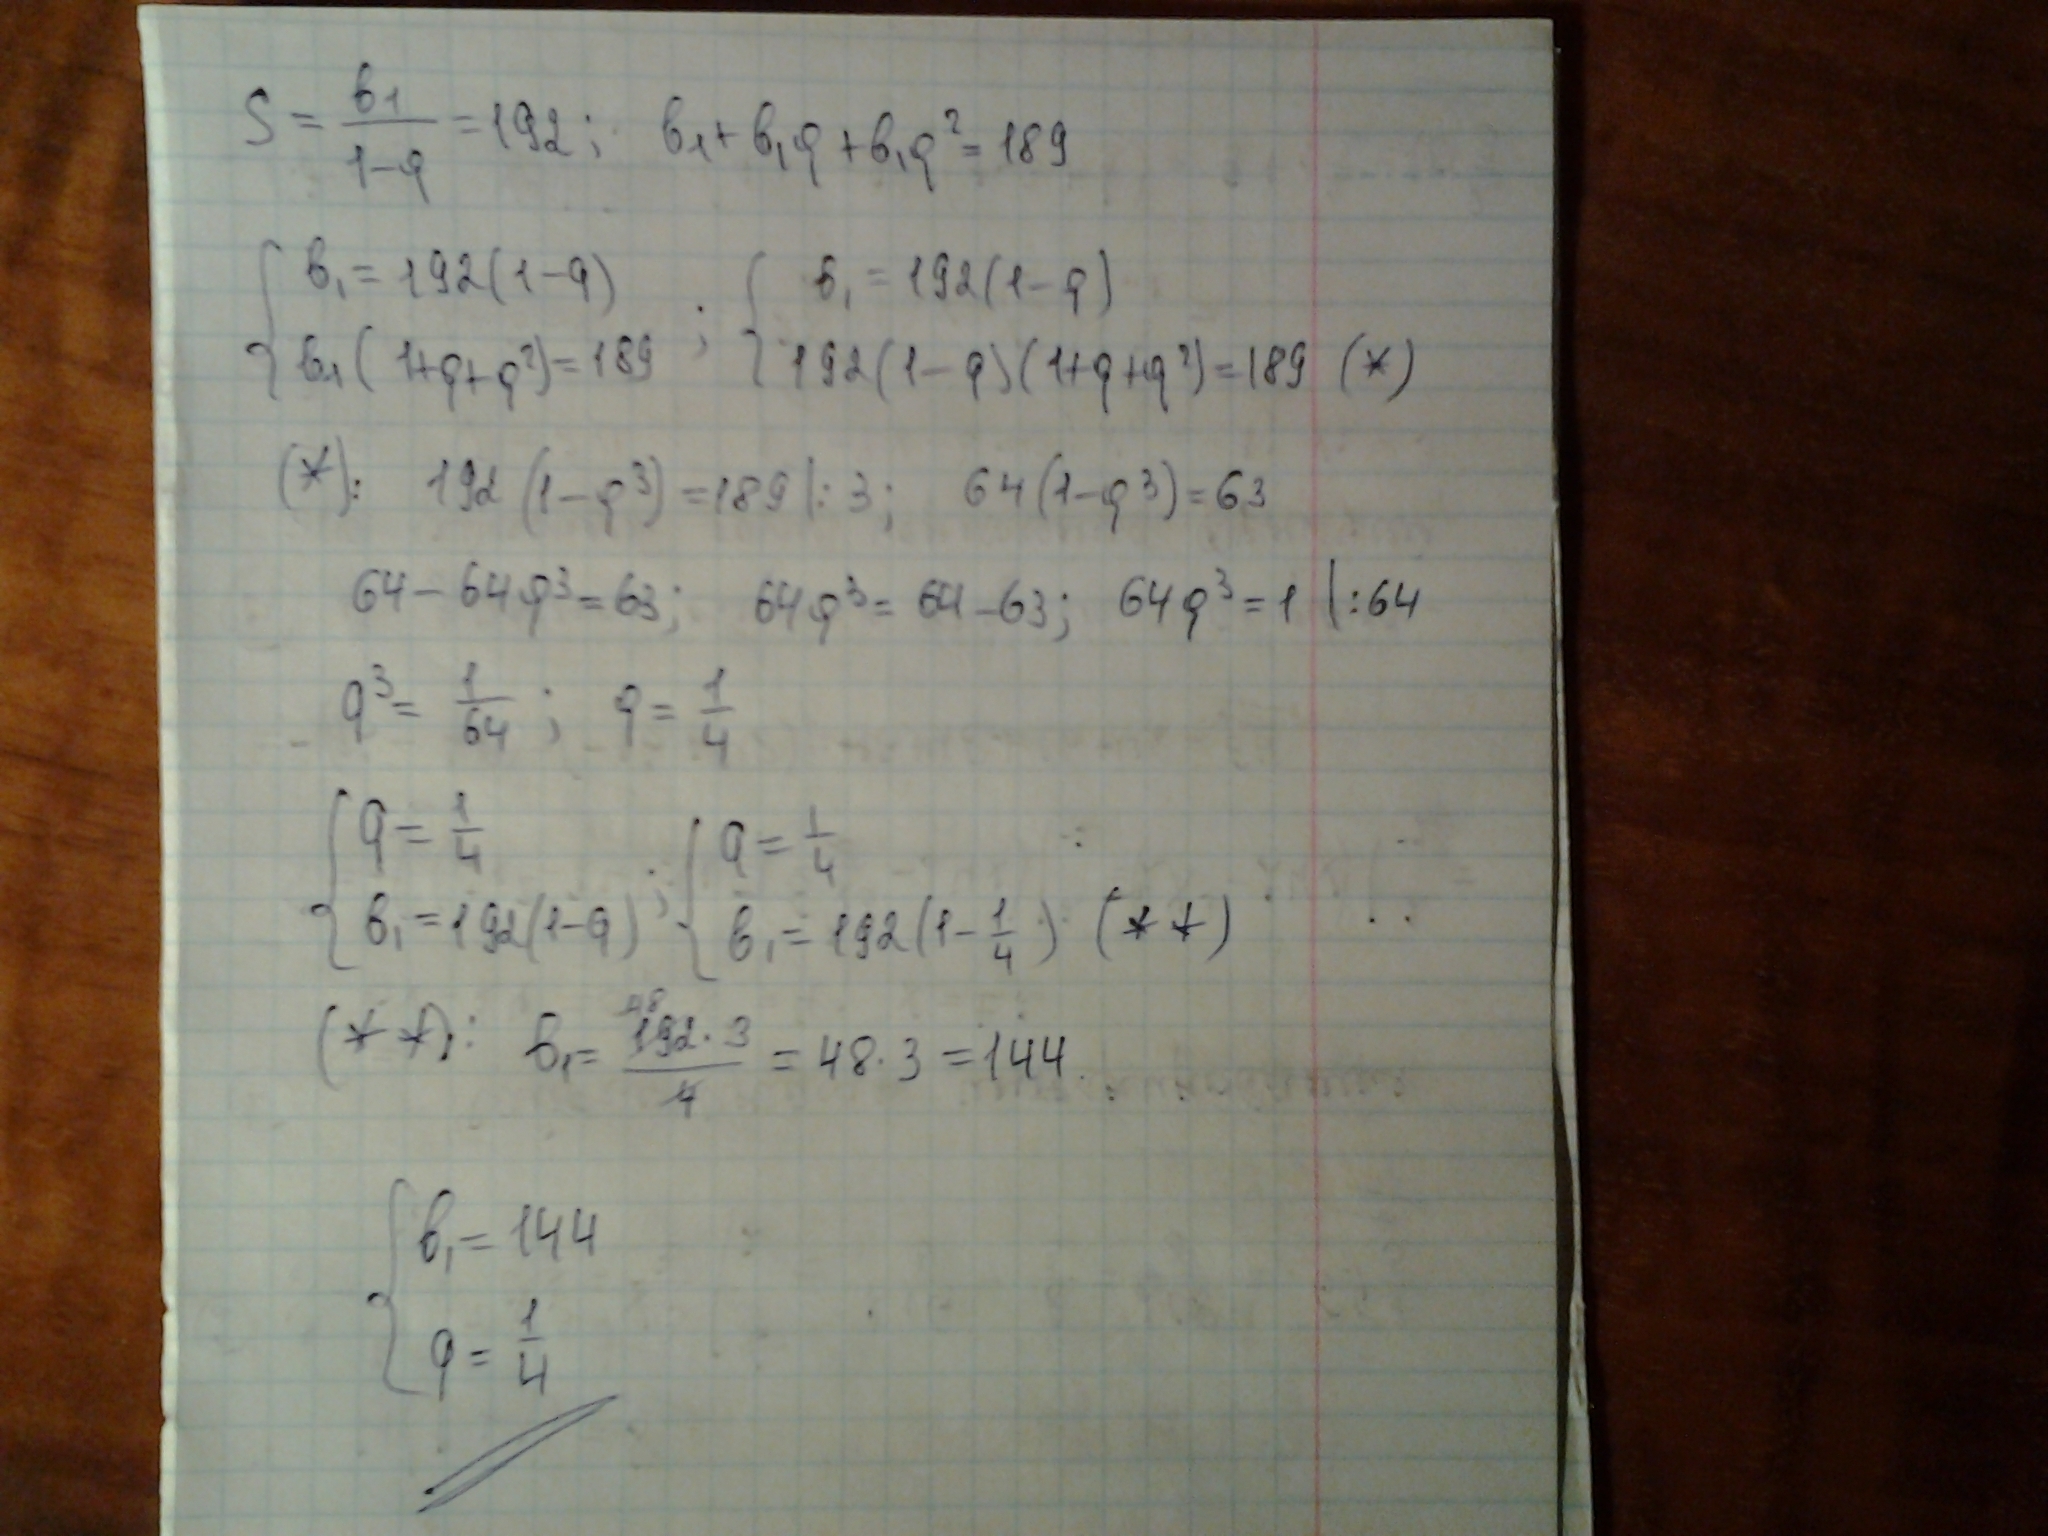 S = b₁/(1-q) = 192; b₁ + b₁q + b₁q² = 189
{ b₁ = 192(1-q) ; { b₁ = 192(1-q)
{ b₁(1+q+q²) = 189 { 192(1-q)(1+q+q²) = 189 (*)
(*): 192(1-q³) = 189 |:3; 64(1-q³) = 63
64 - 64q³ = 63; 64q³ = 64 - 63; 64q³ = 1 |:64
q³ = 1/64; q = 1/4
{ q = 1/4 ; { q = 1/4
{ b₁ = 192(1-q) { b₁ = 192(1 - 1/4) (**)
(**): b₁ = 192·3/4 = 48·3 = 144
{ b₁ = 144
{ q = 1/4